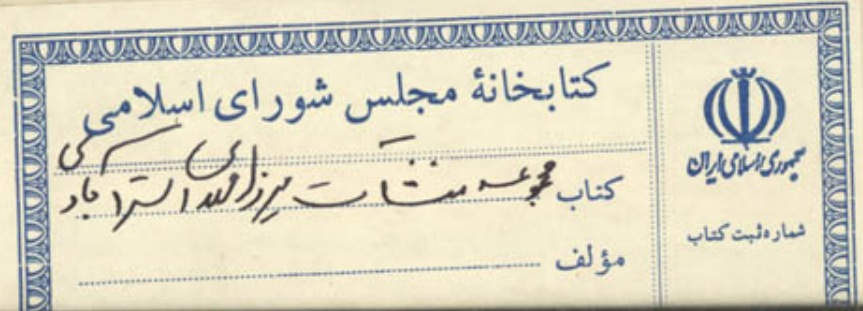 کتابخانهٔ مجلس شورای اسلامی
کتاب مجموعه منشآت میرزا مهدی استرآبادی
مؤلف
جمهوری اسلامی ایران
شماره ثبت کتاب